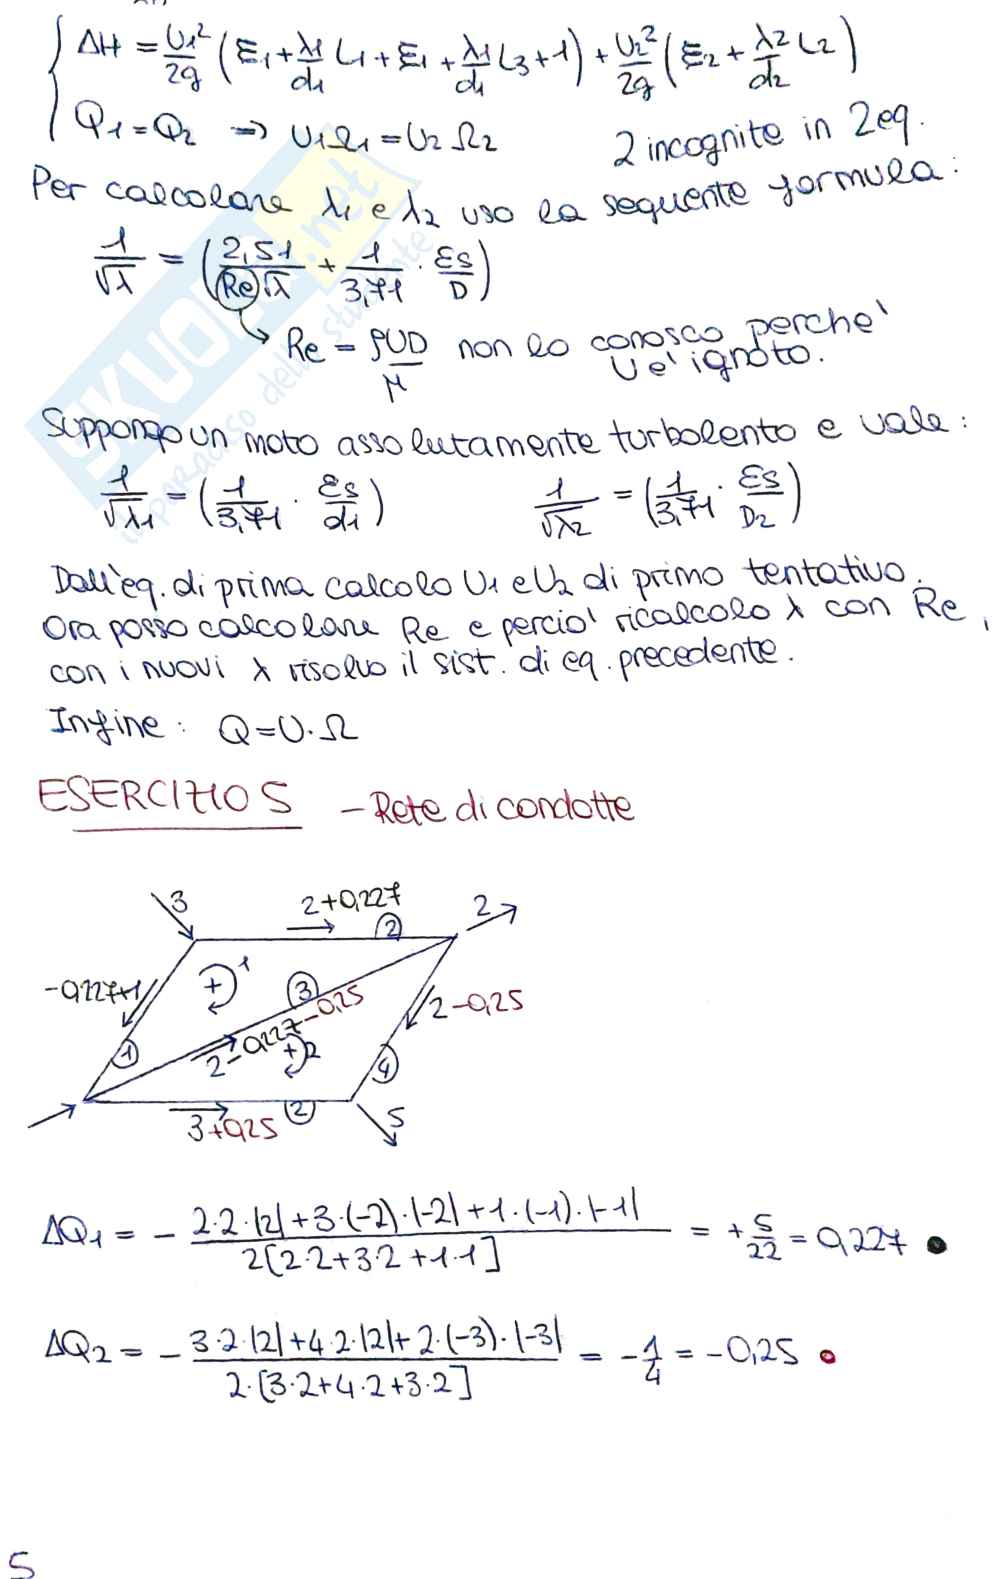 ΔH = U₁²/2g (ξ₁ + λ₁/d₁ L₁ + ξ₁ + λ₁/d₁ L₃ + 1) + U₂²/2g (ξ₂ + λ₂/d₂ L₂)
Q₁ = Q₂ => U₁Ω₁ = U₂Ω₂ 2 incognite in 2 eq.
Per calcolare λ₁ e λ₂ uso la seguente formula:
1/√λ = (2,51/Re√λ + 1/3,71 · εs/D)
Re = ρUD/μ non lo conosco perche'
U e' ignoto.
Suppongo un moto assolutamente turbolento e vale:
1/√λ₁ = (1/3,71 · εs/d₁) 1/√λ₂ = (1/3,71 · εs/D₂)
Dall'eq. di prima calcolo U₁ e U₂ di primo tentativo.
Ora posso calcolare Re e percio' ricalcolo λ con Re,
con i nuovi λ risolvo il sist. di eq. precedente.
Infine: Q = U·Ω
ESERCIZIO 5 - Rete di condotte
3 2+0,227 2
2
-0,227+1 + 1 3
2-0,227-0,25 2-0,25
1 + 2 4
3+0,25 2 5
ΔQ₁ = - 2·2·|2|+3·(-2)·|-2|+1·(-1)·|-1| / 2[2·2+3·2+1·1] = +5/22 = 0,227
ΔQ₂ = - 3·2·|2|+4·2·|2|+2·(-3)·|-3| / 2·[3·2+4·2+3·2] = -1/4 = -0,25
5
SKUOLA.net
il paradiso dello studente